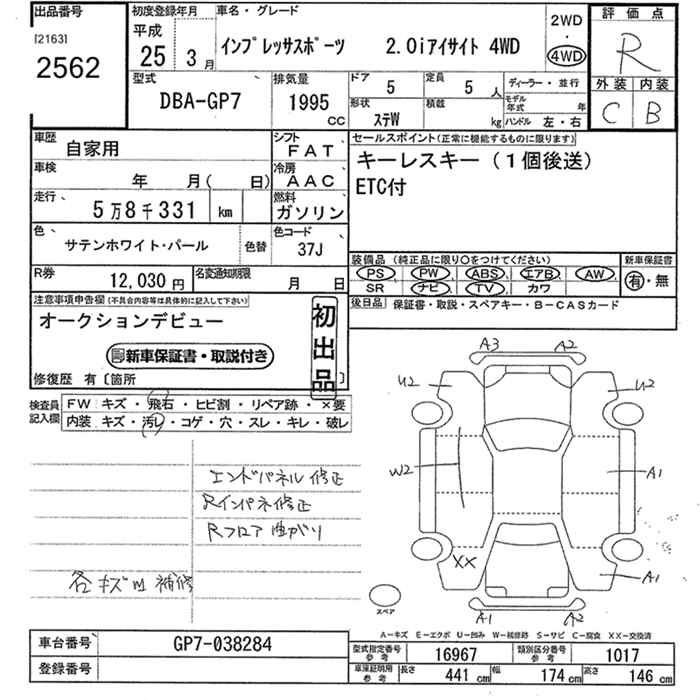 出品番号
[2163]
2562
初度登録年月
平成
25 3月
車名・グレード
インプレッサスポーツ 2.0iアイサイト 4WD
2WD
・
4WD
評価点
R
外装 内装
C B
型式
DBA-GP7
排気量
1995
CC
ドア 5
定員 5 人
形状 ステW
積載 kg
ディーラー・並行
モデル年式 年
ハンドル 左・右
車歴 自家用
シフト FAT
車検 年 月( 日)
冷房 AAC
走行、 5万8千331 km
燃料 ガソリン
色、 サテンホワイト・パール
色替
色コード 37J
R券 12,030円
名変通知期限 月 日
セールスポイント(正常に機能するものに限ります)
キーレスキー(1個後送)
ETC付
装備品(純正品に限り○をつけてください)
PS PW ABS エアB AW
SR ナビ TV カワ
新車保証書
有・無
後日品 保証書・取説・スペアキー・B-CASカード
注意事項申告欄(不具合内容等は具体的に記入して下さい)
オークションデビュー
新車保証書・取説付き
初出品
修復歴 有〔箇所 〕
検査員記入欄
FW キズ・飛石・ヒビ割・リペア跡・×要
内装 キズ・汚レ・コゲ・穴・スレ・キレ・破レ
エンドパネル修正
Rインパネ修正
Rフロア曲がり
各キズ凹補修
A3 A2
U2 U2
W2 A1
XX A1
A1 A2
スペア
A-キズ E-エクボ U-凹み W-補修跡 S-サビ C-腐食 XX-交換済
車台番号 GP7-038284
登録番号
型式指定番号 参考 16967
類別区分番号 参考 1017
車庫証明用 参考 長さ 441cm 幅 174cm 高さ 146cm